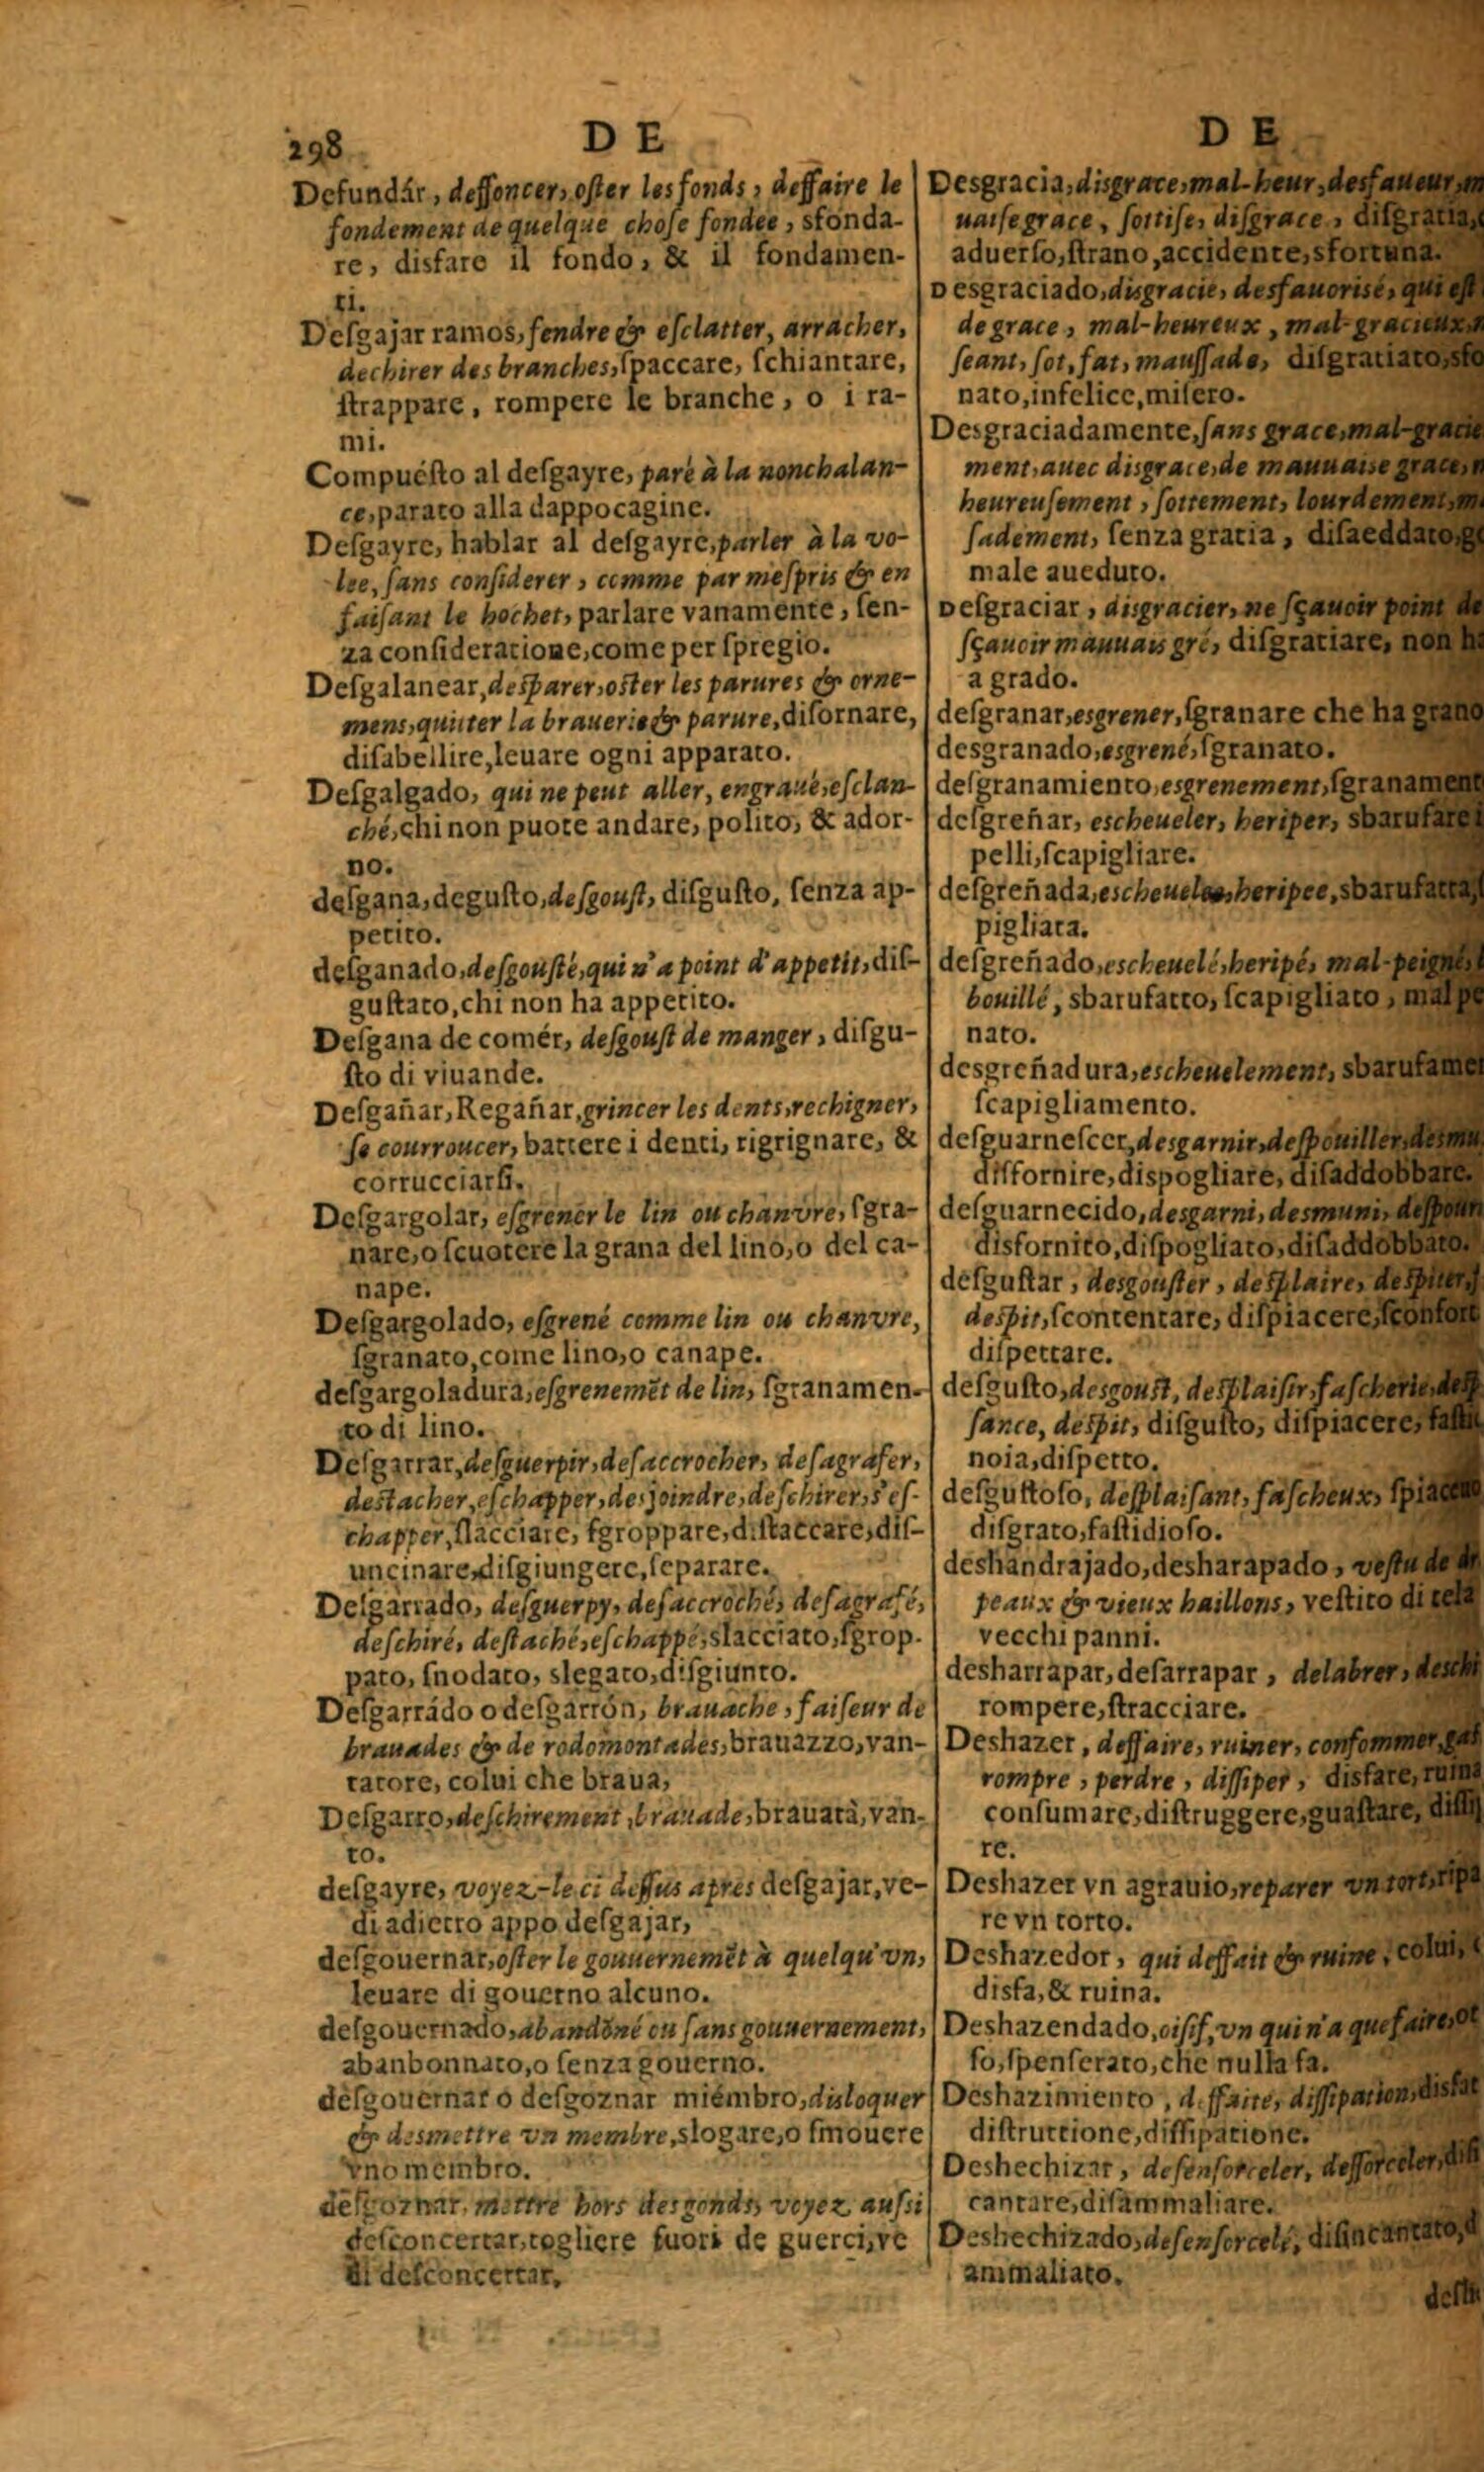 298
D E
Defundár, deffoncer, oſter les fonds, deffaire le
fondement de quelque choſe fondee, sfonda-
re, disfare il fondo, & il fondamen-
ti.
Deſgajar ramos, fendre & eſclatter, arracher,
dechirer des branches, ſpaccare, ſchiantare,
ſtrappare, rompere le branche, o i ra-
mi.
Compuéſto al deſgayre, paré à la nonchalan-
ce, parato alla dappocagine.
Deſgayre, hablar al deſgayre, parler à la vo-
lee, ſans conſiderer, comme par meſpris & en
faiſant le hochet, parlare vanamente, ſen-
za conſideratione, come per ſpregio.
Deſgalanear, desparer, oster les parures & orne-
mens, quitter la brauerie & parure, diſornare,
diſabellire, leuare ogni apparato.
Deſgalgado, qui ne peut aller, engraué, eſclan-
ché, chi non puote andare, polito, & ador-
no.
deſgana, deguſto, deſgouſt, diſguſto, ſenza ap-
petito.
deſganado, deſgouſté, qui n'a point d'appetit, diſ-
guſtato, chi non ha appetito.
Deſgana de comér, deſgouſt de manger, diſgu-
ſto di viuande.
Deſgañar, Regañar, grincer les dents, rechigner,
ſe courroucer, battere i denti, rigrignare, &
corrucciarſi.
Deſgargolar, eſgrener le lin ou chanvre, ſgra-
nare, o ſcuotere la grana del lino, o del ca-
nape.
Deſgargolado, eſgrené comme lin ou chanvre,
ſgranato, come lino, o canape.
deſgargoladura, eſgrenemẽt de lin, ſgranamen-
to di lino.
Deſgarrar, deſguerpir, deſaccrocher, deſagrafer,
destacher, eſchapper, desjoindre, deſchirer, s'eſ-
chapper, ſlacciare, ſgroppare, diſtaccare, diſ-
uncinare, diſgiungere, ſeparare.
Deſgarrado, deſguerpy, deſaccroché, deſagrafé,
deſchiré, deſtaché, eſchappé, slacciato, ſgrop-
pato, ſnodato, slegato, diſgiunto.
Deſgarrádo o deſgarrón, brauache, faiſeur de
brauades & de rodomontades, brauazzo, van-
tatore, colui che braua,
Deſgarro, deſchirement, brauade, brauatà, van-
to.
deſgayre, voyez-le ci deſſus apres deſgajar, ve-
di adietro appo deſgajar,
deſgouernar, oſter le gouuernemẽt à quelqu'vn,
leuare di gouerno alcuno.
deſgouernado, abandõné ou ſans gouuernement,
abanbonnato, o ſenza gouerno.
deſgouernar o deſgoznar miémbro, disloquer
& desmettre vn membre, slogare, o ſmouere
vno membro.
deſgoznar, mettre hors des gonds, voyez auſsi
deſconcertar, togliere fuori de guerci, ve
di deſconcertar,
D E
Desgracia, disgrace, mal-heur, desfaueur, m
uaiſe grace, ſottiſe, diſgrace, diſgratia,
aduerſo, ſtrano, accidente, sfortuna.
Desgraciado, disgracié, desfauorisé, qui eſt
de grace, mal-heureux, mal-gracieux,
ſeant, ſot, fat, mauſſade, diſgratiato, sfo
nato, infelice, miſero.
Desgraciadamente, ſans grace, mal-gracie
ment, auec disgrace, de mauuaise grace,
heureuſement, ſottement, lourdement, m
ſadement, ſenza gratia, diſaeddato, g
male aueduto.
Deſgraciar, disgracier, ne ſçauoir point de
ſçauoir mauuais gré, diſgratiare, non h
a grado.
deſgranar, esgrener, ſgranare che ha grano
desgranado, esgrené, ſgranato.
deſgranamiento, esgrenement, ſgranament
deſgreñar, escheueler, heriper, sbarufare i
pelli, ſcapigliare.
deſgreñada, escheuelee, heripee, sbarufatta,
pigliata.
deſgreñado, escheuelé, heripé, mal-peigné,
bouillé, sbarufatto, ſcapigliato, mal pe
nato.
desgreñadura, escheuelement, sbarufame
ſcapigliamento.
deſguarneſcer, desgarnir, deſpouiller, desmu
diffornire, dispogliare, diſaddobbare.
deſguarnecido, desgarni, desmuni, deſpour
disfornito, diſpogliato, diſaddobbato.
deſguſtar, desgouſter, desplaire, despiter,
despit, ſcontentare, diſpiacere, ſconfort
diſpettare.
deſguſto, desgoust, desplaiſir, faſcherie, desp
ſance, despit, diſguſto, diſpiacere, faſti
noia, diſpetto.
deſguſtoſo, deſplaiſant, faſcheux, ſpiaceuo
diſgrato, faſtidioſo.
deshandrajado, desharapado, veſtu de dr
peaux & vieux haillons, veſtito di tela
vecchi panni.
desharrapar, deſarrapar, delabrer, deschi
rompere, ſtracciare.
Deshazer, deffaire, ruiner, conſommer, gaſ
rompre, perdre, diſſiper, disfare, ruina
conſumare, diſtruggere, guaſtare, diſſi
re.
Deshazer vn agrauio, reparer vn tort, ripa
re vn torto.
Deshazedor, qui deffait & ruine, colui,
disfa, & ruina.
Deshazendado, oiſif, vn qui n'a que faire, ot
ſo, ſpenſerato, che nulla fa.
Deshazimiento, deffaite, diſſipation, disfat
diſtruttione, diſſipatione.
Deshechizar, deſenſorceler, deſſorceler, diſi
cantare, diſammaliare.
Deshechizado, deſenſorcelé, diſincantato, d
ammaliato.